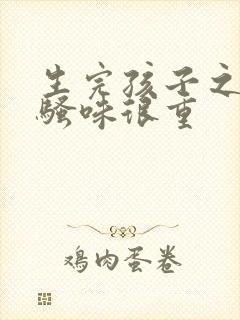 生完孩子之
骚味很重
鸡肉蛋卷